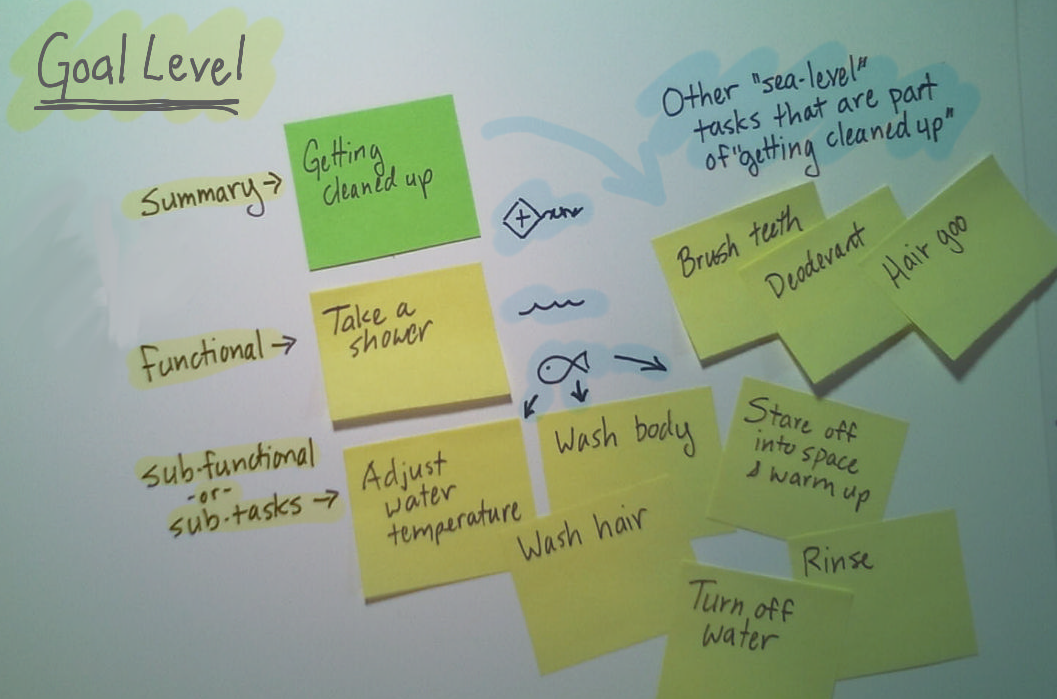 Goal Level
Summary →
Getting
cleaned up
Other "sea-level"
tasks that are part
of "getting cleaned up"
Brush teeth
Deodevant
Hair goo
Functional →
Take a
shower
sub-functional
-or-
sub-tasks →
Adjust
water
temperature
Wash body
Wash hair
Stare off
into space
& warm up
Rinse
Turn off
water